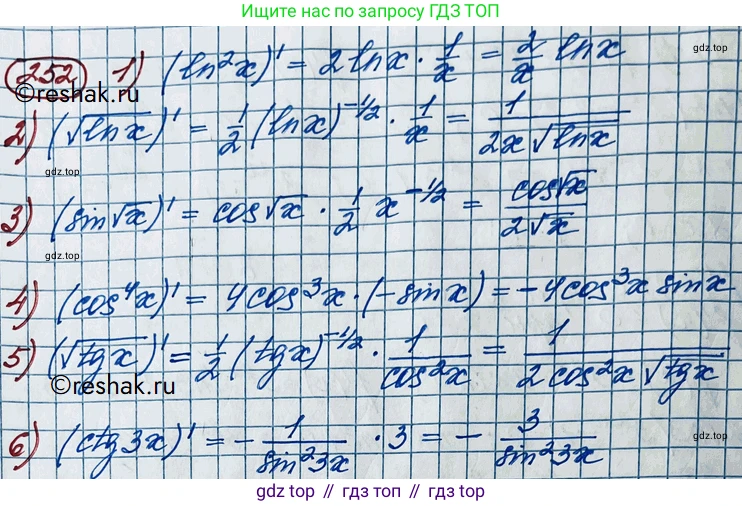 Ищите нас по запросу ГДЗ ТОП
252 1) (ln²x)' = 2 lnx · 1/x = 2/x lnx
©reshak.ru
2) (√lnx)' = 1/2 (lnx)^(-1/2) · 1/x = 1/(2x√lnx)
gdz.top
gdz.top
3) (sin√x)' = cos√x · 1/2 x^(-1/2) = cos√x/(2√x)
gdz.top
gdz.top
4) (cos⁴x)' = 4cos³x · (-sinx) = -4cos³x sinx
5) (√tgx)' = 1/2 (tgx)^(-1/2) · 1/cos²x = 1/(2cos²x √tgx)
©reshak.ru
6) (ctg3x)' = - 1/sin²3x · 3 = - 3/sin²3x
gdz.top // гдз топ // gdz.top // гдз.top